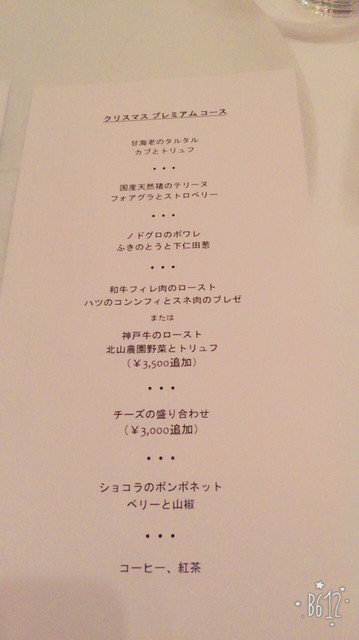 クリスマス プレミアム コース
甘海老のタルタル
カブとトリュフ
• • •
国産天然猪のテリーヌ
フォアグラとストロベリー
• • •
ノドグロのポワレ
ふきのとうと下仁田葱
• • •
和牛フィレ肉のロースト
ハツのコンンフィとスネ肉のブレゼ
または
神戸牛のロースト
北山農園野菜とトリュフ
(￥3,500追加)
• • •
チーズの盛り合わせ
(￥3,000追加)
• • •
ショコラのポンポネット
ベリーと山椒
• • •
コーヒー、紅茶
B612